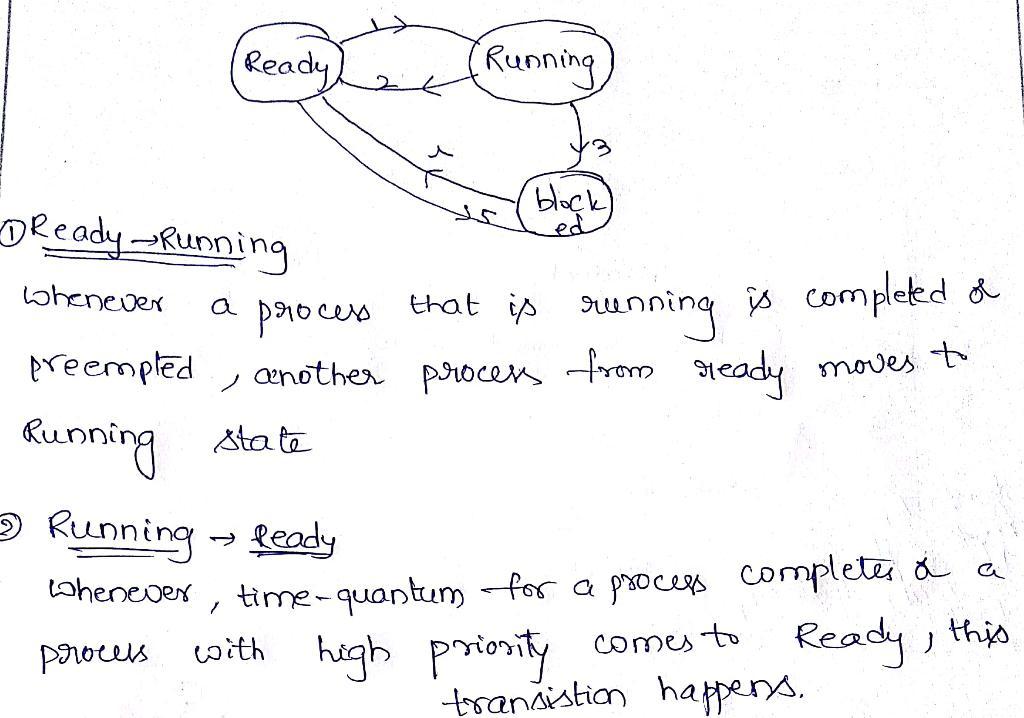 1
Ready
Running
2
3
block
ed
5
① Ready → Running
Whenever a process that is running is completed or
preempted, another process from ready moves to
Running state
② Running → Ready
Whenever, time-quantum for a process completes or a
process with high priority comes to Ready, this
transistion happens.